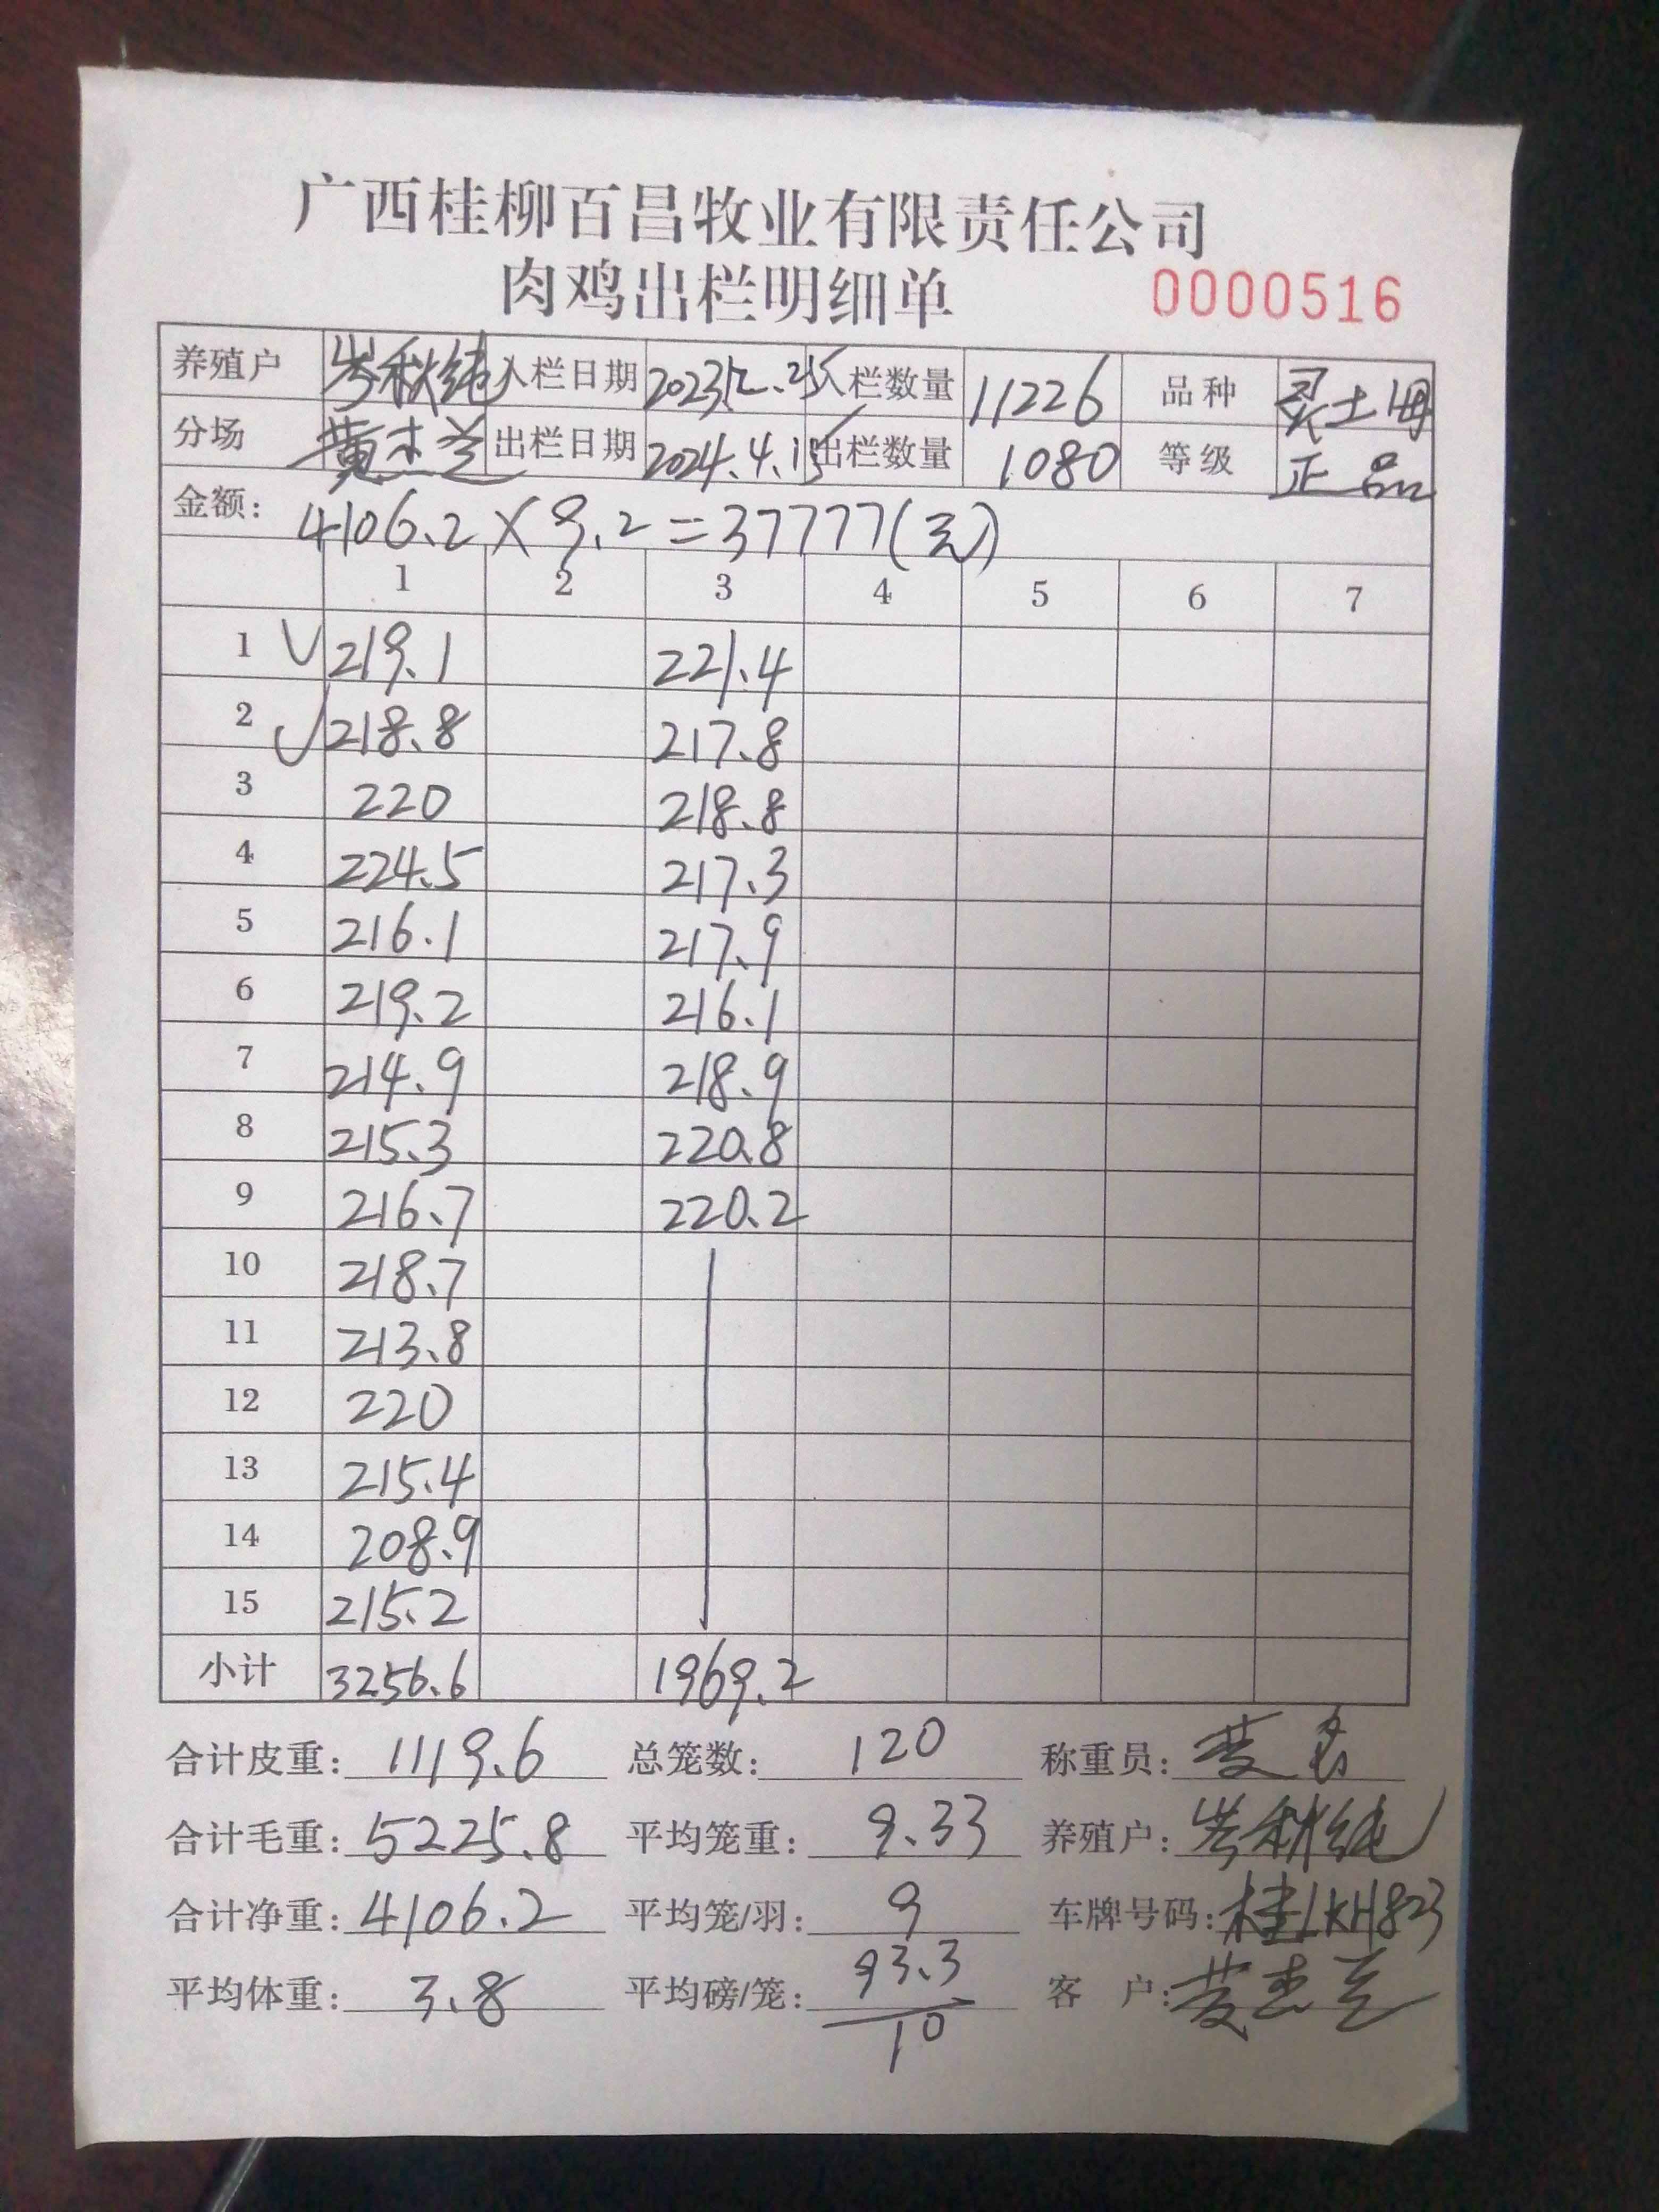 广西桂柳百昌牧业有限责任公司
肉鸡出栏明细单 0000516
养殖户 岑秋纯 入栏日期 2023.12.25 入栏数量 11226 品种 灵土
分场 出栏日期 2024.4.15 出栏数量 1080 等级 正品
金额: 4106.2×9.2=37777(元)
1 2 3 4 5 6 7
1 219.1 221.4
2 218.8 217.8
3 220 218.8
4 224.5 217.3
5 216.1 217.9
6 219.2 216.1
7 214.9 218.9
8 215.3 220.8
9 216.7 220.2
10 218.7
11 213.8
12 220
13 215.4
14 208.9
15 215.2
小计 3256.6 1969.2
合计皮重: 1119.6 总笼数: 120 称重员:
合计毛重: 5225.8 平均笼重: 9.33 养殖户: 岑秋纯
合计净重: 4106.2 平均笼/羽: 9 车牌号码: 桂LKH823
平均体重: 3.8 平均磅/笼: 93.3/10 客户: